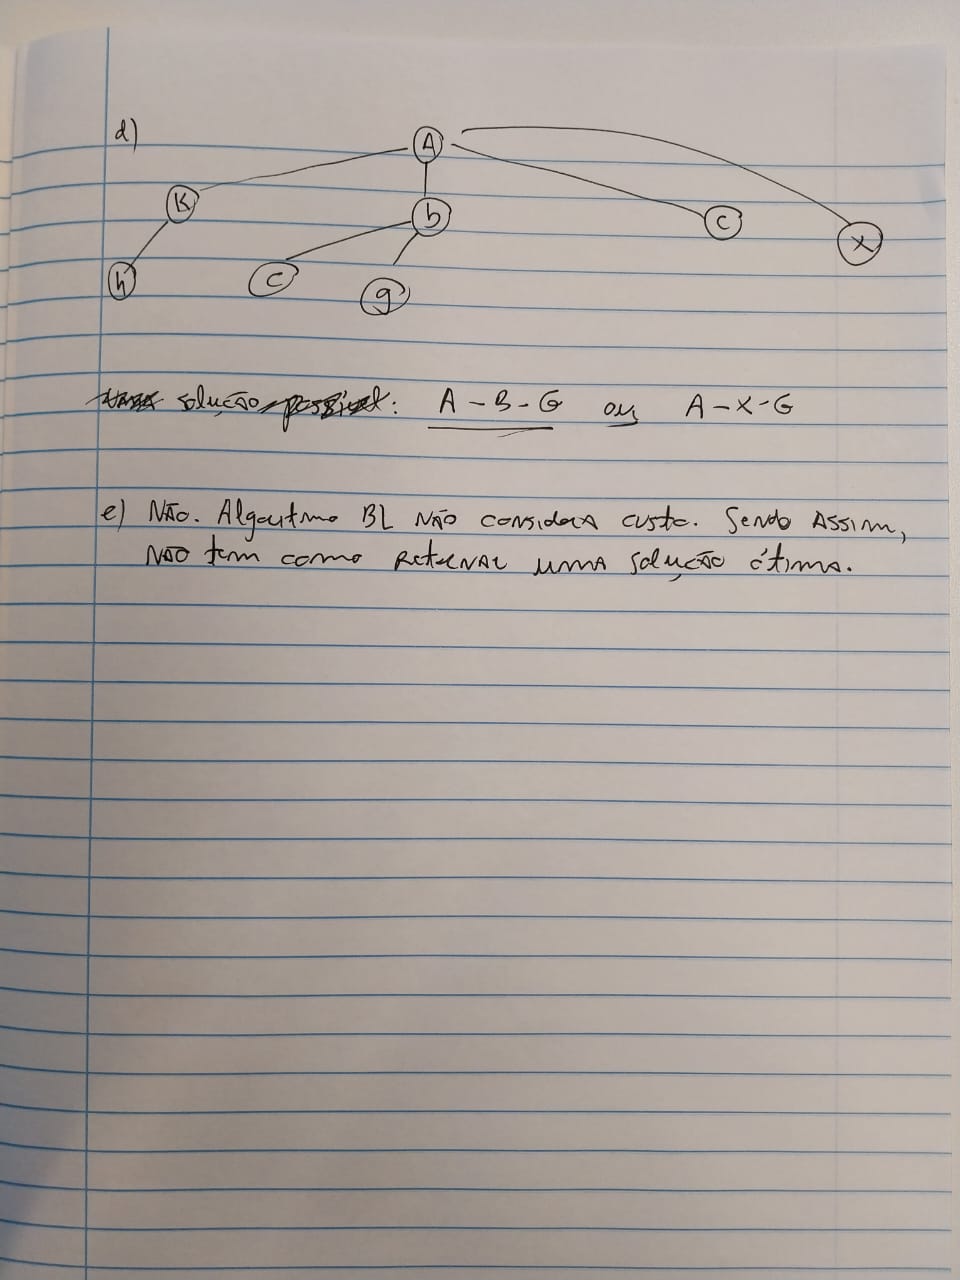 d)
A
K b C X
h C g
solução: A - B - G ou A - X - G
e) NÃO. Algoritmo BL NÃO considera custo. Sendo Assim,
NÃO tem como Retornar uma solução ótima.